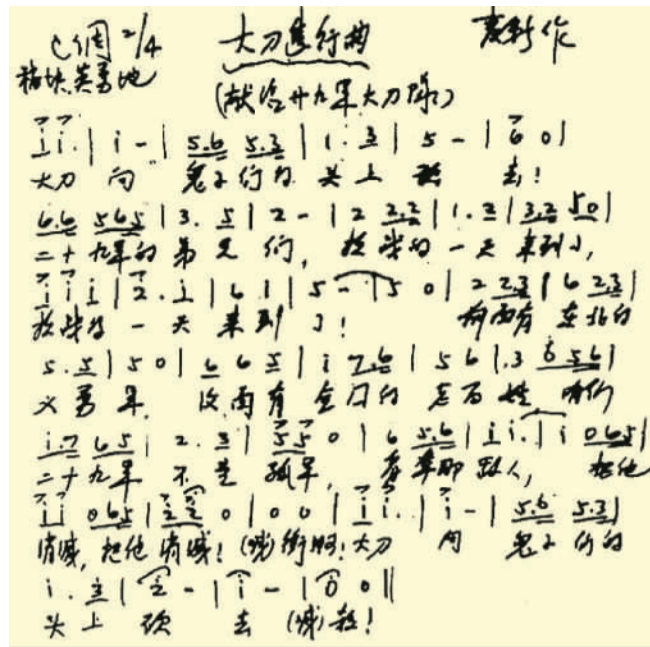 C调 2/4 大刀进行曲 麦新作
精快英勇地
(献给廿九军大刀队)
i i. | i - | 5.6 5.3 | 1. 3 | 5 - | 6 0 |
大刀 向 鬼子们的 头上 砍 去!
6.6 565 | 3. 5 | 2 - | 2 2.3 | 1. 2 | 3.2 50 |
二十九军的弟兄们, 抗战的一天来到了,
i i i | 2. i | 6 1 | 5 - | 5 0 | 2 2.3 | 6 2.3 |
抗战的一天来到了! 前面有东北的
5. 5 | 5 0 | 6 6 5 | i 7.6 | 5 6 | .3 6 56 |
义勇军, 后面有全国的老百姓, 咱们
i.7 65 | 2. 3 | 55 0 | 6 5.6 | i i. | i 065 |
二十九军不是孤军, 看准那敌人, 把他
i i 065 | 2 2 0 | 0 0 | i i. | i - | 5.6 5.3 |
消灭, 把他消灭! (喊)冲啊! 大刀 向 鬼子们的
i. 3 | 2 - | i - | 0 0 ||
头上 砍 去 (喊)杀!